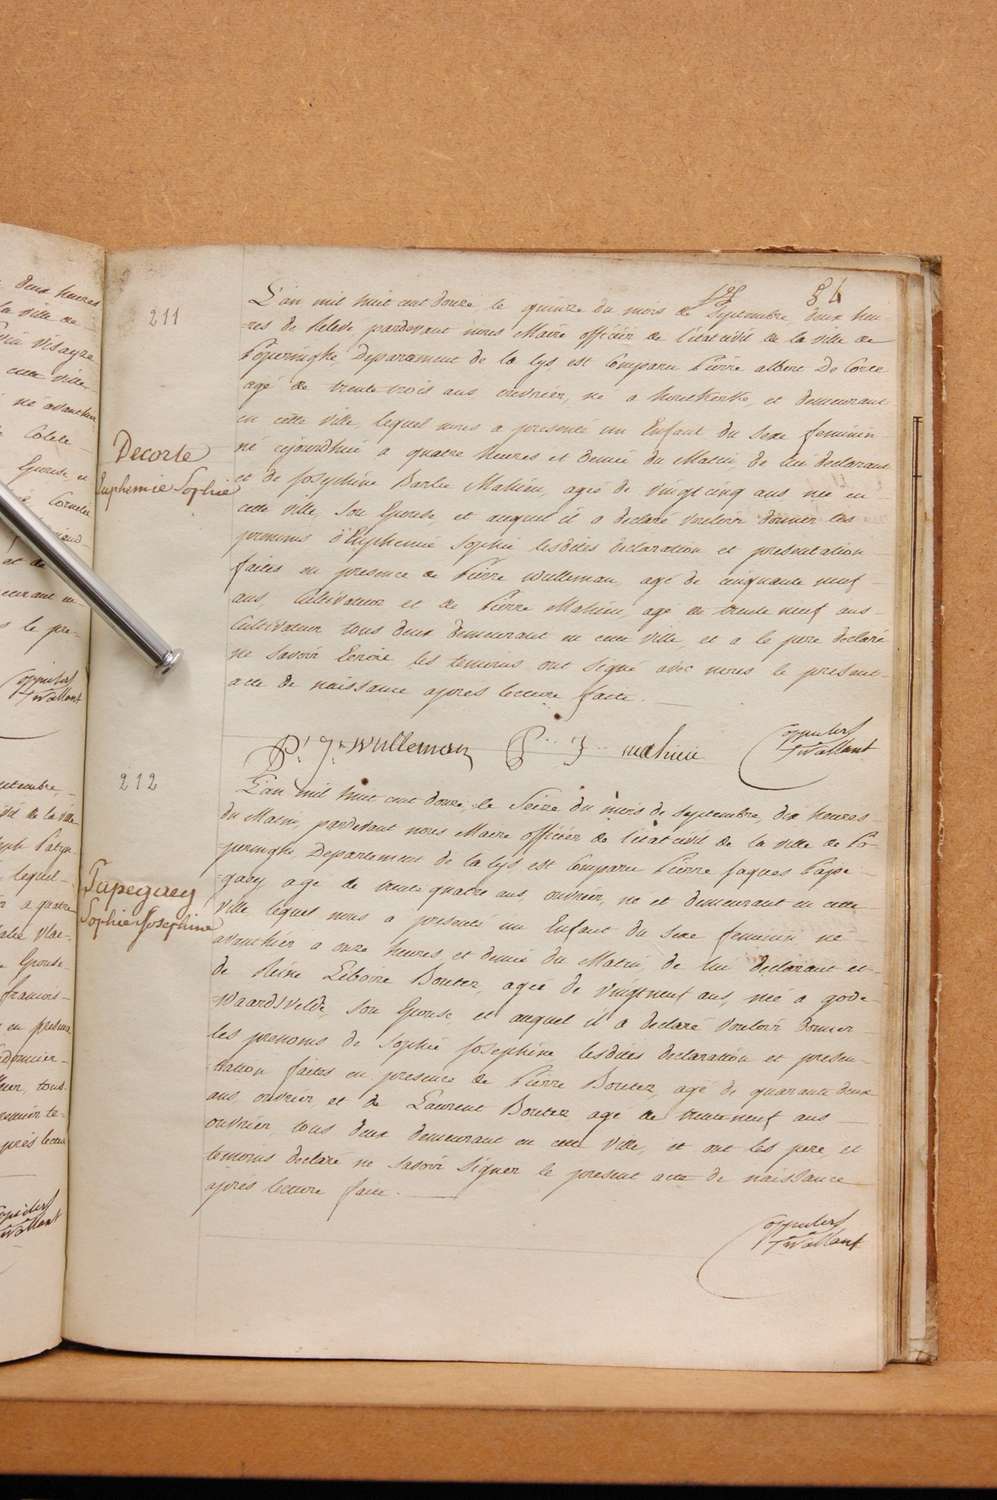 84
211
L'an mil huit cent douze le quinze du mois de Septembre, deux heu-
res de Relevé, pardevant nous Maire officier de l'état civil de la ville de
Poperinghe, Departement de la Lys, est Comparu Pierre albert De Corte
agé de trente trois ans ouvrier, né a , et demeurant
en cette ville, lequel nous a presenté un Enfant du Sexe feminin
né cejourdhui a quatre heures et demie du Matin, de lui declarant
et de Josephine Barbe Mahieu, agée de vingt cinq ans née en
cette ville, Son Epouse, et auquel il a declaré vouloir donner les
prenoms d'Euphemie Sophie lesdites declaration et presentation
faites en presence de Pierre Wulleman, agé de cinquante neuf
ans, Cultivateur et de Pierre Mahieu, agé de trente neuf ans
Cultivateur tous deux demeurant en cette ville et a le pere declaré
ne savoir Ecrire les temoins ont Signé avec nous le present
acte de naissance apres lecture faite.
Decorte
Euphemie Sophie
Pr. Jn. Wulleman P J mahieu
Vaillant
212
L'an mil huit cent douze, le Seize du mois de Septembre, dix heures
du Matin, pardevant nous Maire officier de l'état civil de la ville de Po-
peringhe, Departement de la Lys est Comparu Pierre Jaques Pape-
gaey agé de trente quatre ans, ouvrier, né et demeurant en cette
ville lequel nous a presenté un Enfant du Sexe feminin né
avanthier a onze heures et demie du Matin, de lui declarant et
de Reine Liboire Boutez, agée de Vingt neuf ans, née a gode-
waardsvelde, Son Epouse et auquel il a declaré vouloir donner
les prenoms de Sophie Josephine, lesdites declaration et presen-
tation faites en presence de Pierre Boutez, agé de quarante deux
ans ouvrier et de Laurent Boutez agé de trente neuf ans
ouvrier, tous deux demeurant en cette ville, et ont les pere et
temoins declaré ne savoir Signer le present acte de naissance
apres lecture faite.
Papegaey
Sophie Josephine
Vaillant